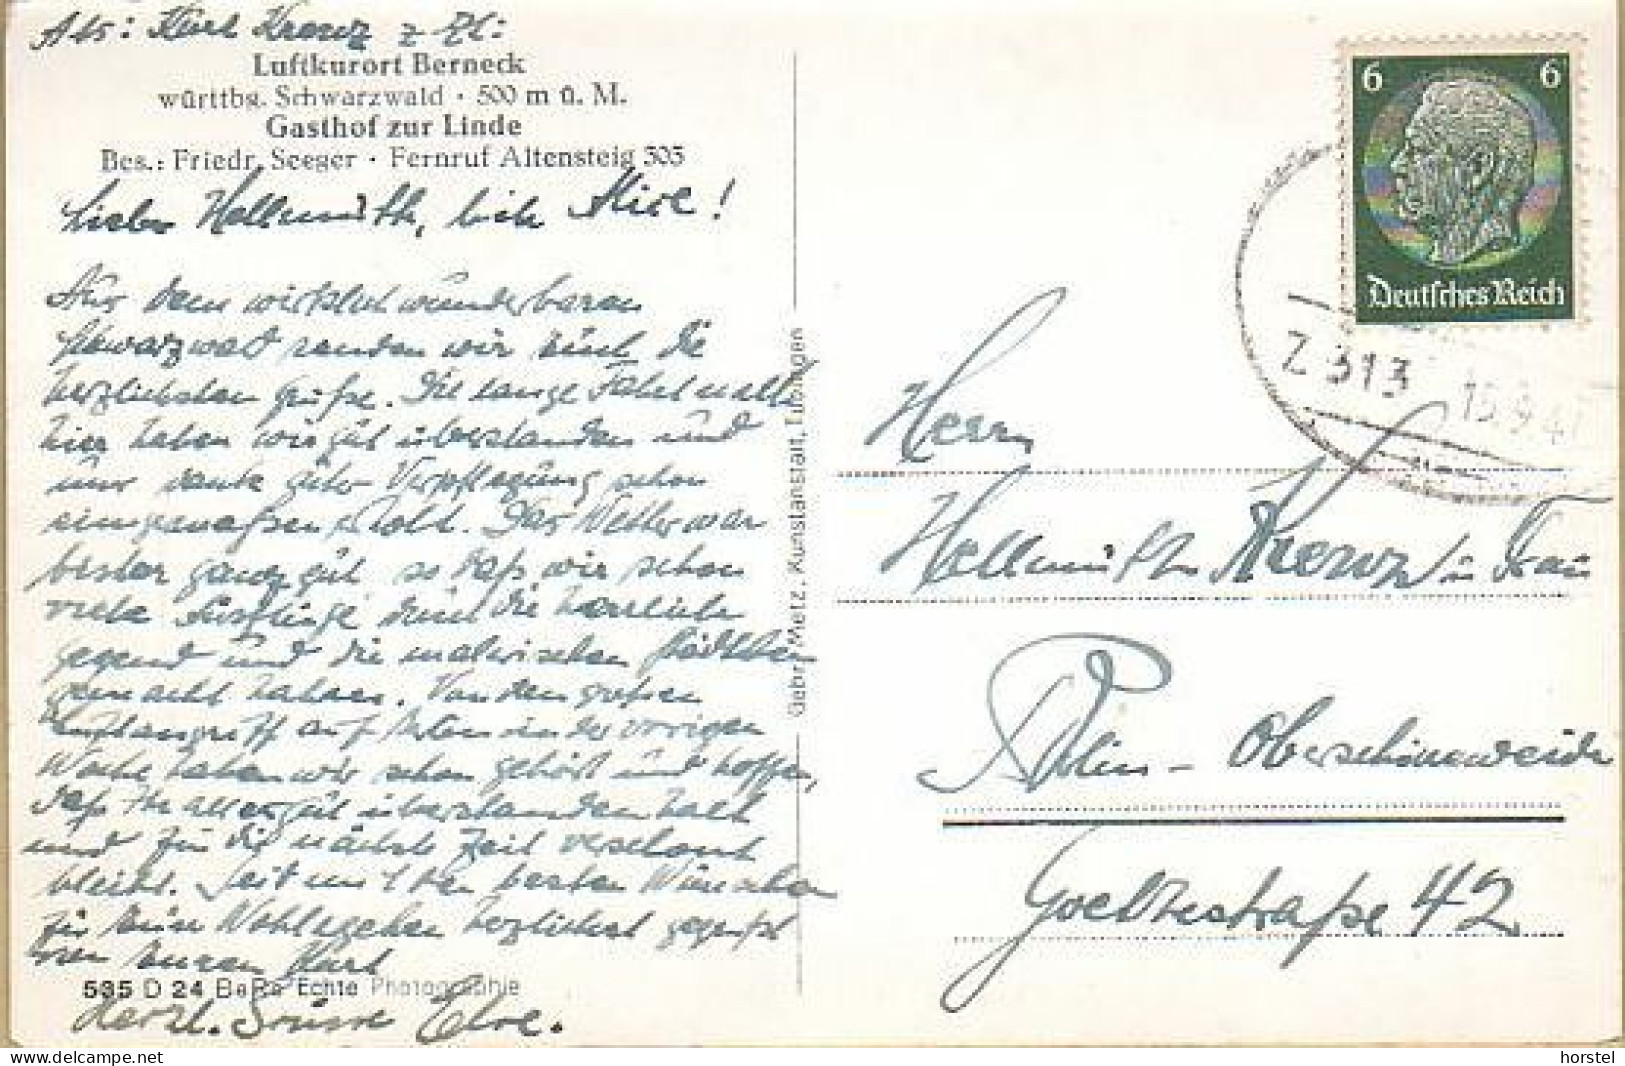 Abs: Karl Krenz z. Zt:
Luftkurort Berneck
württbg. Schwarzwald · 500 m ü. M.
Gasthof zur Linde
Bes.: Friedr. Seeger · Fernruf Altensteig 303
Lieber Hellmuth, liebe
Aus dem wirklich wunderbaren
Schwarzwald senden wir Euch die
herzlichsten Grüße. Die lange Fahrt
hier haben wir gut überstanden und
uns dank guter Verpflegung schon
einigermaßen erholt. Das Wetter war
bisher ganz gut, so daß wir schon
viele Ausflüge durch die herrliche
Gegend und die malerischen Städtchen
gemacht haben. Von dem großen
Luftangriff auf Berlin in der vorigen
Woche haben wir schon gehört und hoffen,
daß Ihr alles gut überstanden habt
und für die nächste Zeit verschont
bleibt. Seit mit den besten Wünschen
für Euer Wohlergehen herzlichst gegrüßt
von Eurem Karl
535 D 24 BeRa Echte Photographie
Herzl. Grüsse Else.
Gebr. Metz, Kunstanstalt, Tübingen
6 6
Deutsches Reich
Z 313 15.9.41
Herrn
Hellmuth Krenz u. Frau
Berlin - Oberschöneweide
Goethestraße 42
horstel
www.delcampe.net